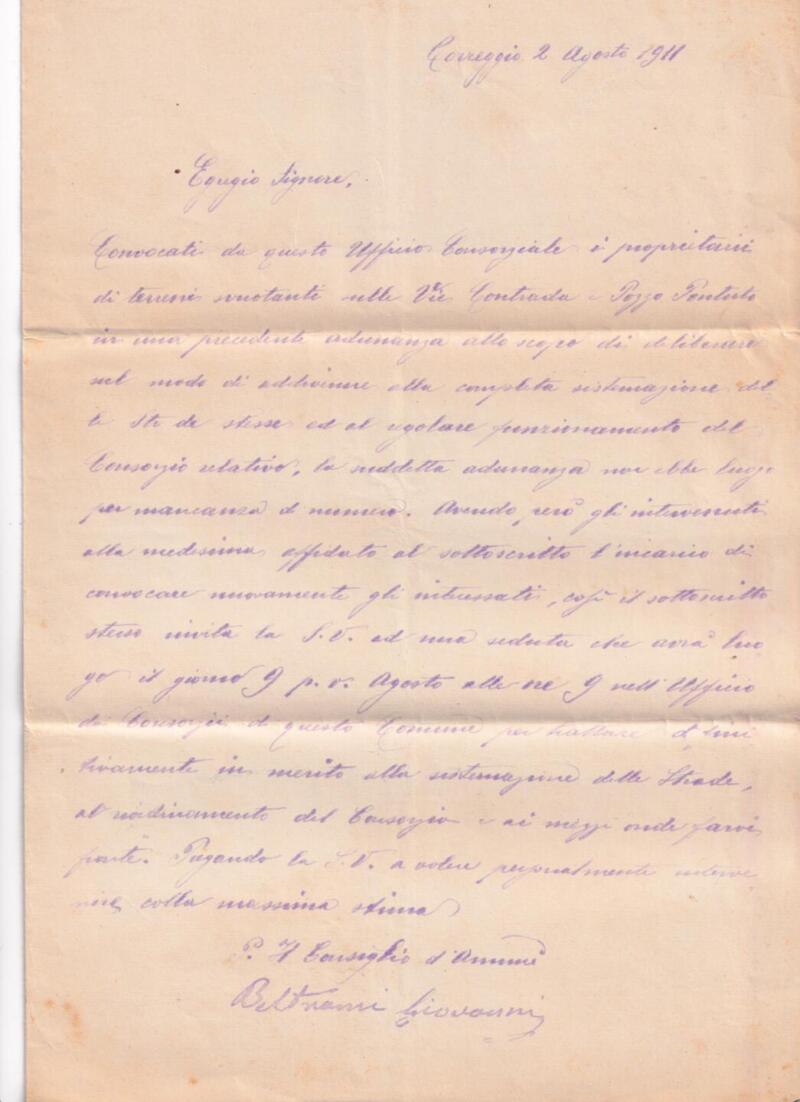 Correggio 2 Agosto 1911
Egregio Signore,
Convocati da questo Ufficio Consorziale i proprietarii
di terreni svuotanti sulle Vie Contrada e Pozzo Pontuto
in una precedente adunanza allo scopo di deliberare
sul modo di addivenire alla completa sistemazione del
le Strade stesse ed al regolare funzionamento del
Consorzio relativo, la suddetta adunanza non ebbe luogo
per mancanza di numero. Avendo però gli intervenuti
alla medesima affidato al sottoscritto l'incarico di
convocare nuovamente gli interessati, così il sottoscritto
stesso invita la S.V. ad una seduta che avrà luo
go il giorno 9 p.v. Agosto alle ore 9 nell'Ufficio
dei Consorzii di questo Comune per trattare defini
tivamente in merito alla sistemazione delle Strade,
al riordinamento del Consorzio e ai mezzi onde farvi
fronte. Pregando la S.V. a volere personalmente interve
nire, colla massima stima
P. Il Consiglio d'Ammne
Beltrami Giovanni